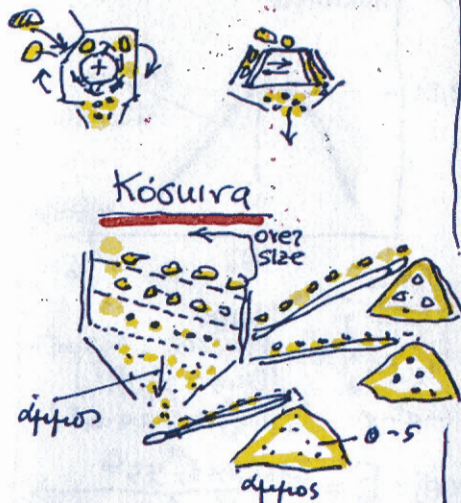 Κόσκινα
over
size
άμμος
0-5
άμμος